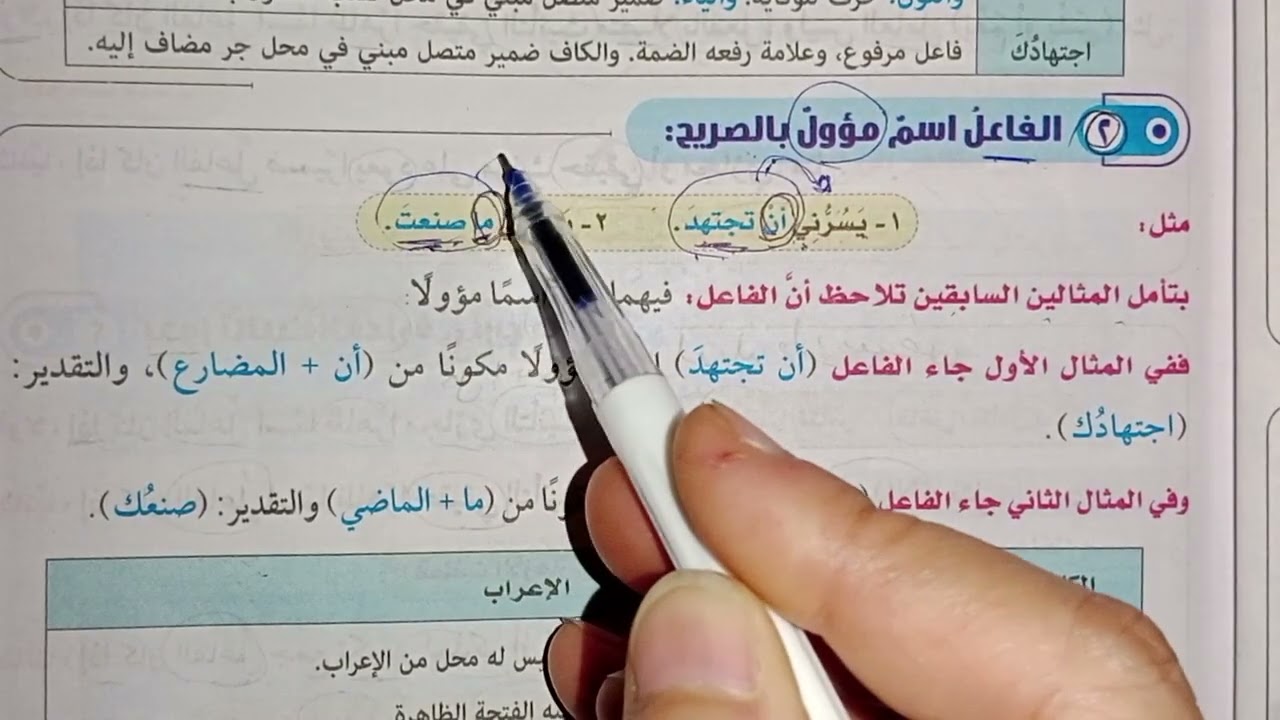 اجتهادُكَ فاعل مرفوع، وعلامة رفعه الضمة. والكاف ضمير متصل مبني في محل جر مضاف إليه.
٢ الفاعلُ اسمٌ مؤولٌ بالصريح:
مثل: ١- يَسُرُّنِي أنْ تجتهدَ. ٢- ما صنعتَ.
بتأمل المثالين السابقين تلاحظ أنَّ الفاعل: مؤولًا:
ففي المثال الأول جاء الفاعل (أن تجتهدَ) مكونًا من (أن + المضارع)، والتقدير:
(اجتهادُك).
وفي المثال الثاني جاء الفاعل من (ما + الماضي) والتقدير: (صنعُك).
الإعراب
له محل من الإعراب.
الفتحة الظاهرة